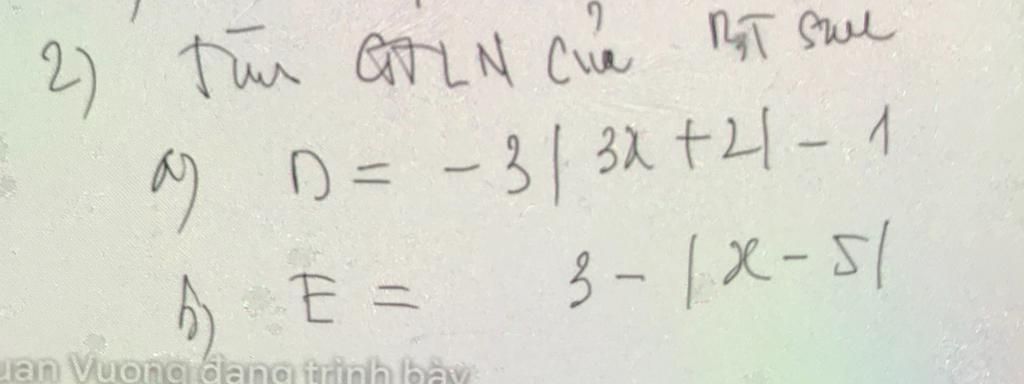 2) Tìm GTLN của BT sau
a) D = -3|3x+2| - 1
b) E = 3 - |x-5|
uan Vuong đang trình bày